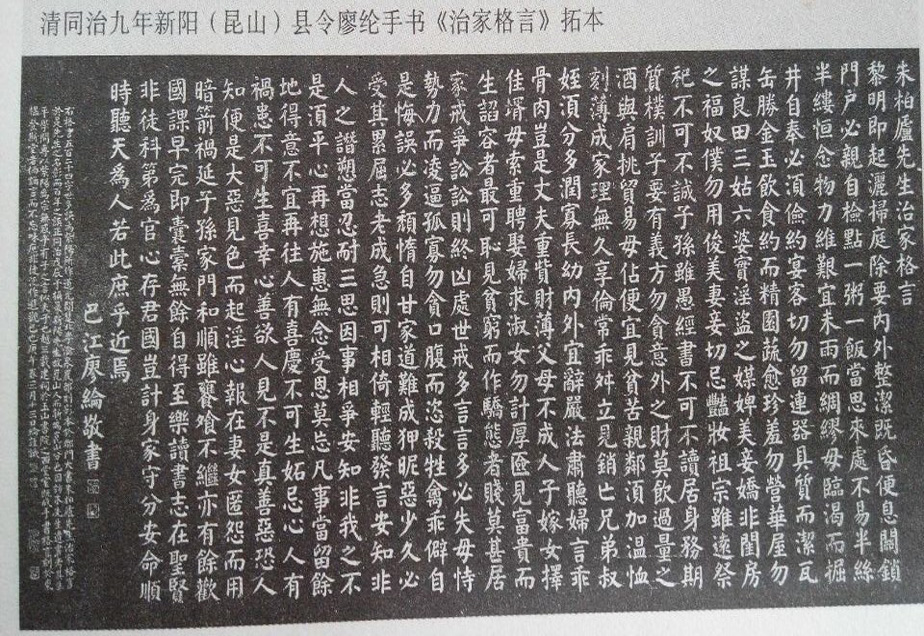 清同治九年新阳(昆山)县令廖纶手书《治家格言》拓本
朱柏廬先生治家格言
黎明即起灑掃庭除要內外整潔既昏便息關鎖
門戶必親自撿點一粥一飯當思來處不易半絲
半縷恒念物力維艱宜未雨而綢繆毋臨渴而掘
井自奉必須儉約宴客切勿留連器具質而潔瓦
缶勝金玉飲食約而精園蔬愈珍羞勿營華屋勿
謀良田三姑六婆實淫盜之媒婢美妾嬌非閨房
之福奴僕勿用俊美妻妾切忌豔妝祖宗雖遠祭
祀不可不誠子孫雖愚經書不可不讀居身務期
質樸訓子要有義方勿貪意外之財莫飲過量之
酒與肩挑貿易毋佔便宜見貧苦親鄰須加溫恤
刻薄成家理無久享倫常乖舛立見銷亡兄弟叔
姪須分多潤寡長幼內外宜辭嚴法肅聽婦言乖
骨肉豈是丈夫重貲財薄父母不成人子嫁女擇
佳婿毋索重聘娶婦求淑女勿計厚匳見富貴而
生諂容者最可恥見貧窮而作驕態者賤莫甚居
家戒爭訟訟則終凶處世戒多言言多必失毋恃
勢力而凌逼孤寡勿貪口腹而恣殺牲禽乖僻自
是悔誤必多頹惰自甘家道難成狎昵惡少久必
受其累屈志老成急則可相倚輕聽發言安知非
人之譖愬當忍耐三思因事相爭安知非我之不
是須平心再想施惠無念受恩莫忘凡事當留餘
地得意不宜再往人有喜慶不可生妬忌心人有
禍患不可生喜幸心善欲人見不是真善惡恐人
知便是大惡見色而起淫心報在妻女匿怨而用
暗箭禍延子孫家門和順雖饔飧不繼亦有餘歡
國課早完即囊橐無餘自得至樂讀書志在聖賢
非徒科第為官心存君國豈計身家守分安命順
時聽天為人若此庶乎近焉
巴江廖綸敬書